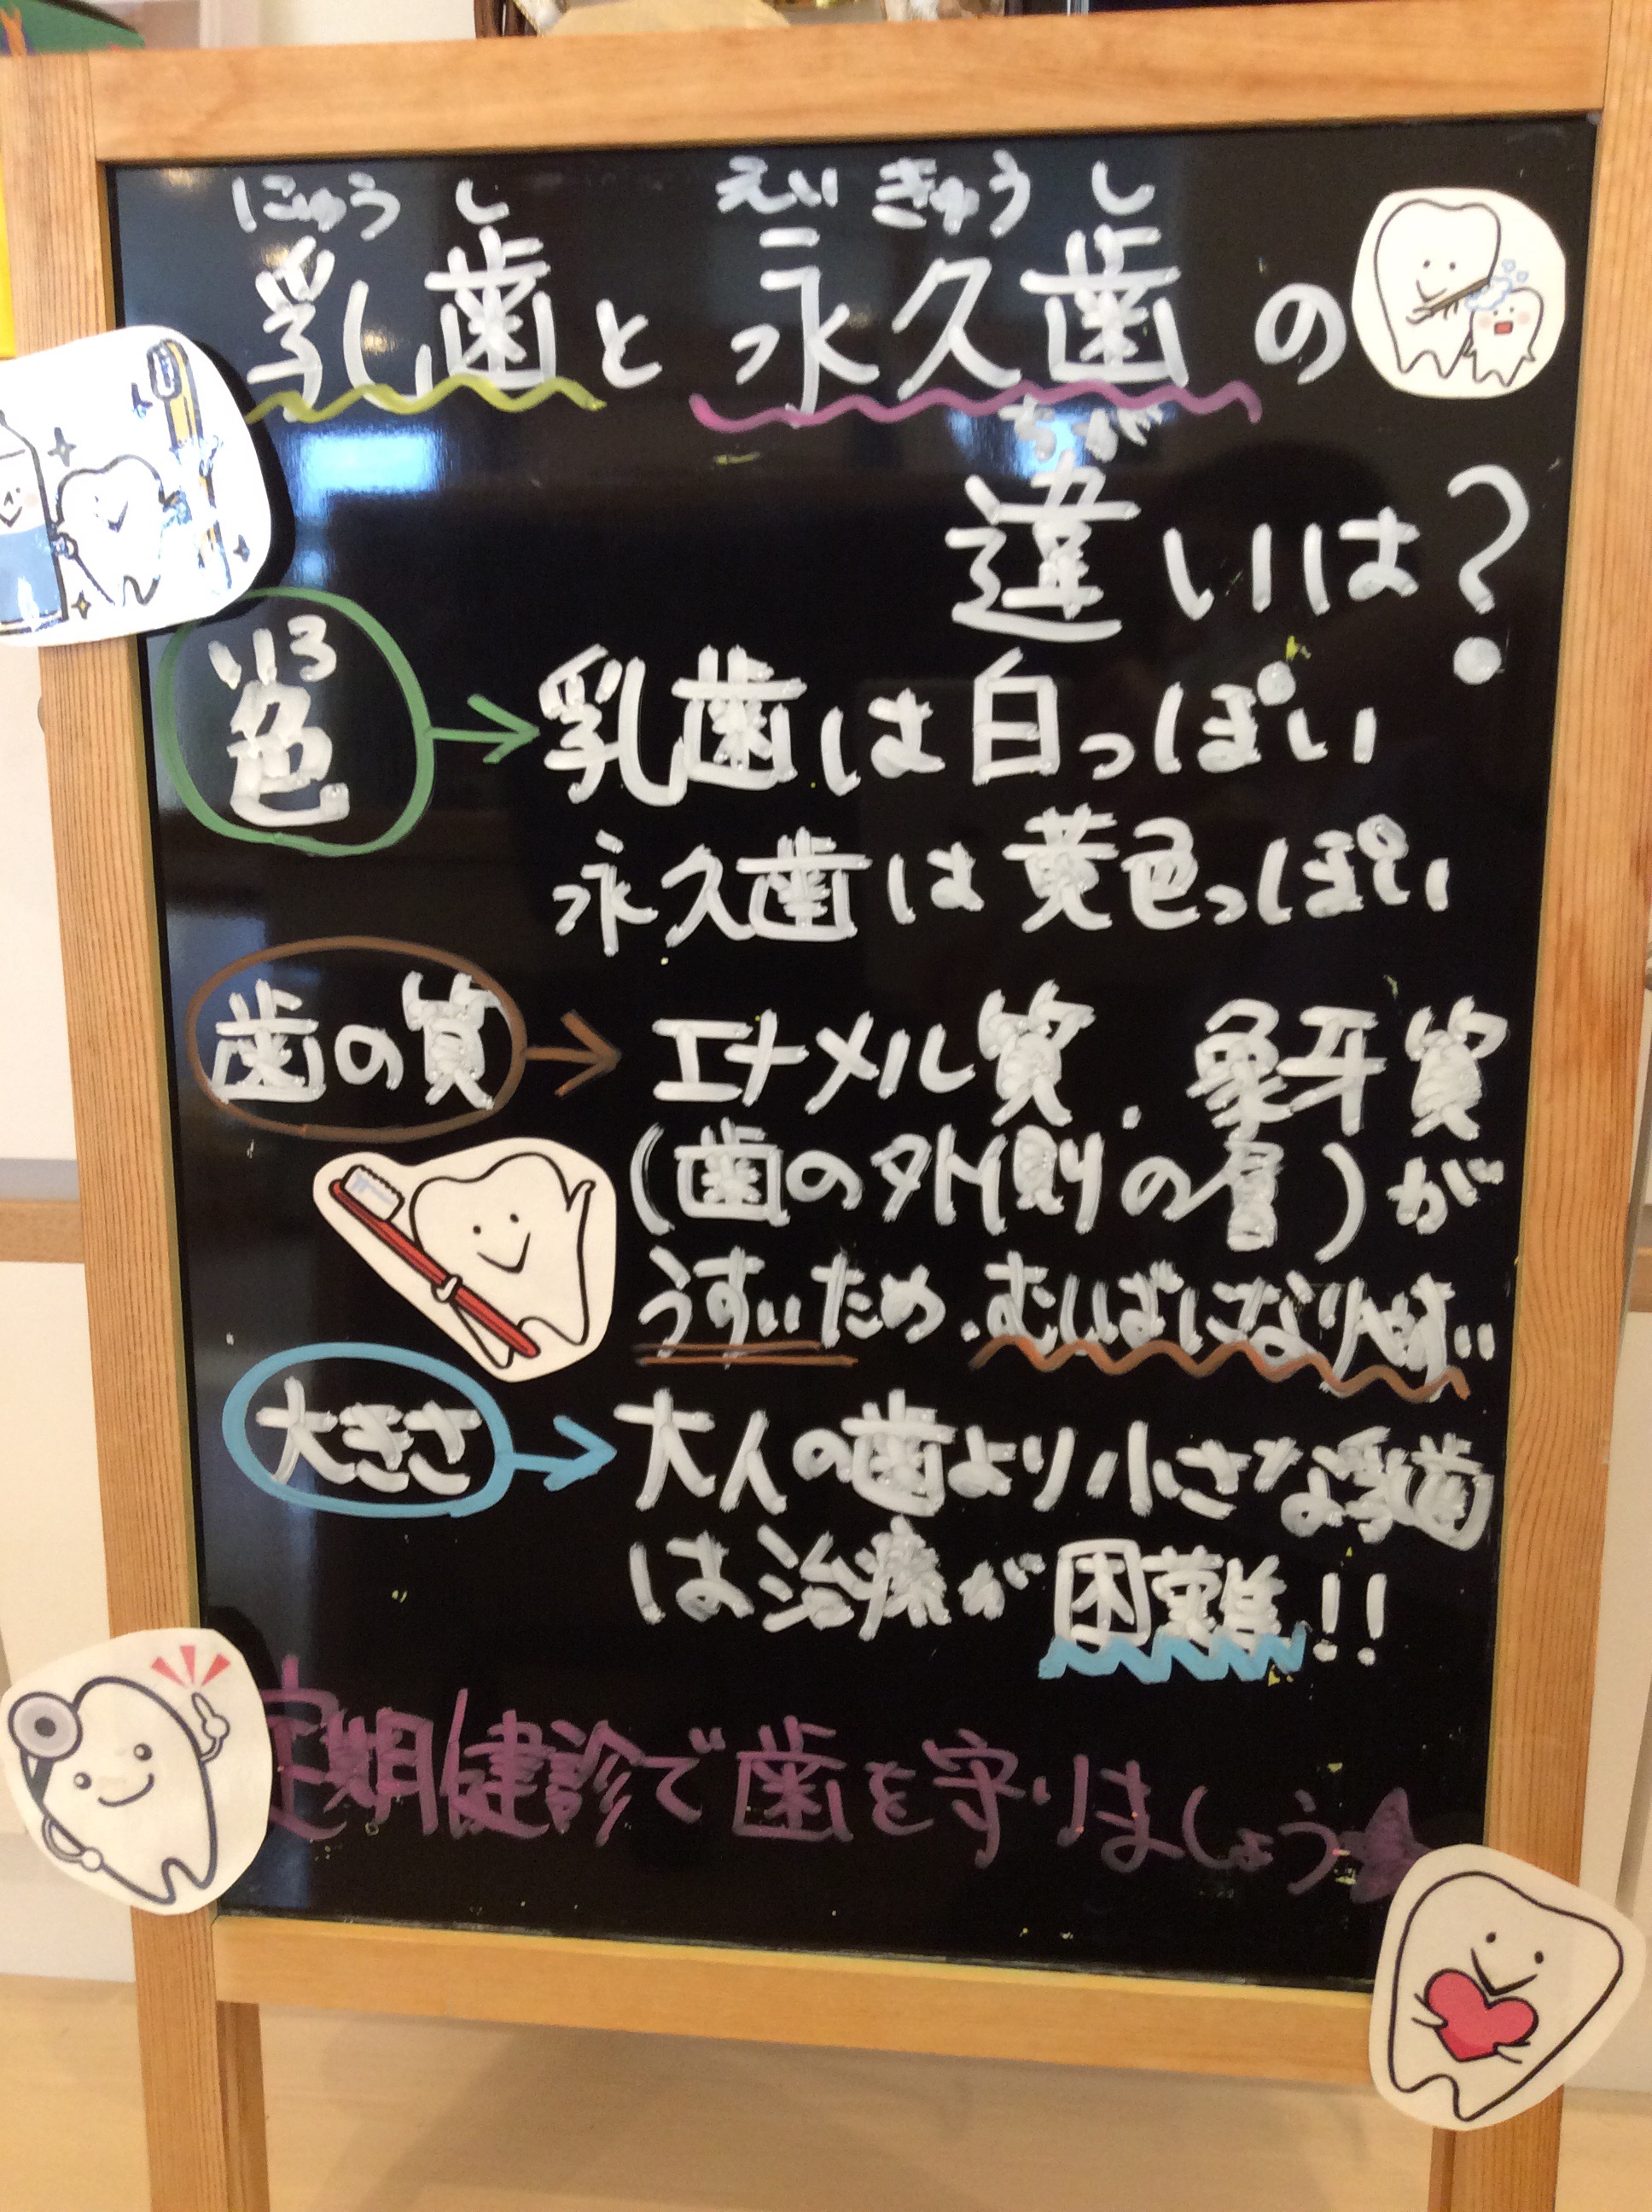 にゅう し えい きゅう し
乳歯と永久歯の
ちが
違いは?
いろ
色→乳歯は白っぽい
永久歯は黄色っぽい
歯の質→エナメル質.象牙質
(歯の外側の層)が
うすいため.むしばになりやすい
大きさ→大人の歯より小さな乳歯
は治療が困難!!
定期健診で歯を守りましょう★